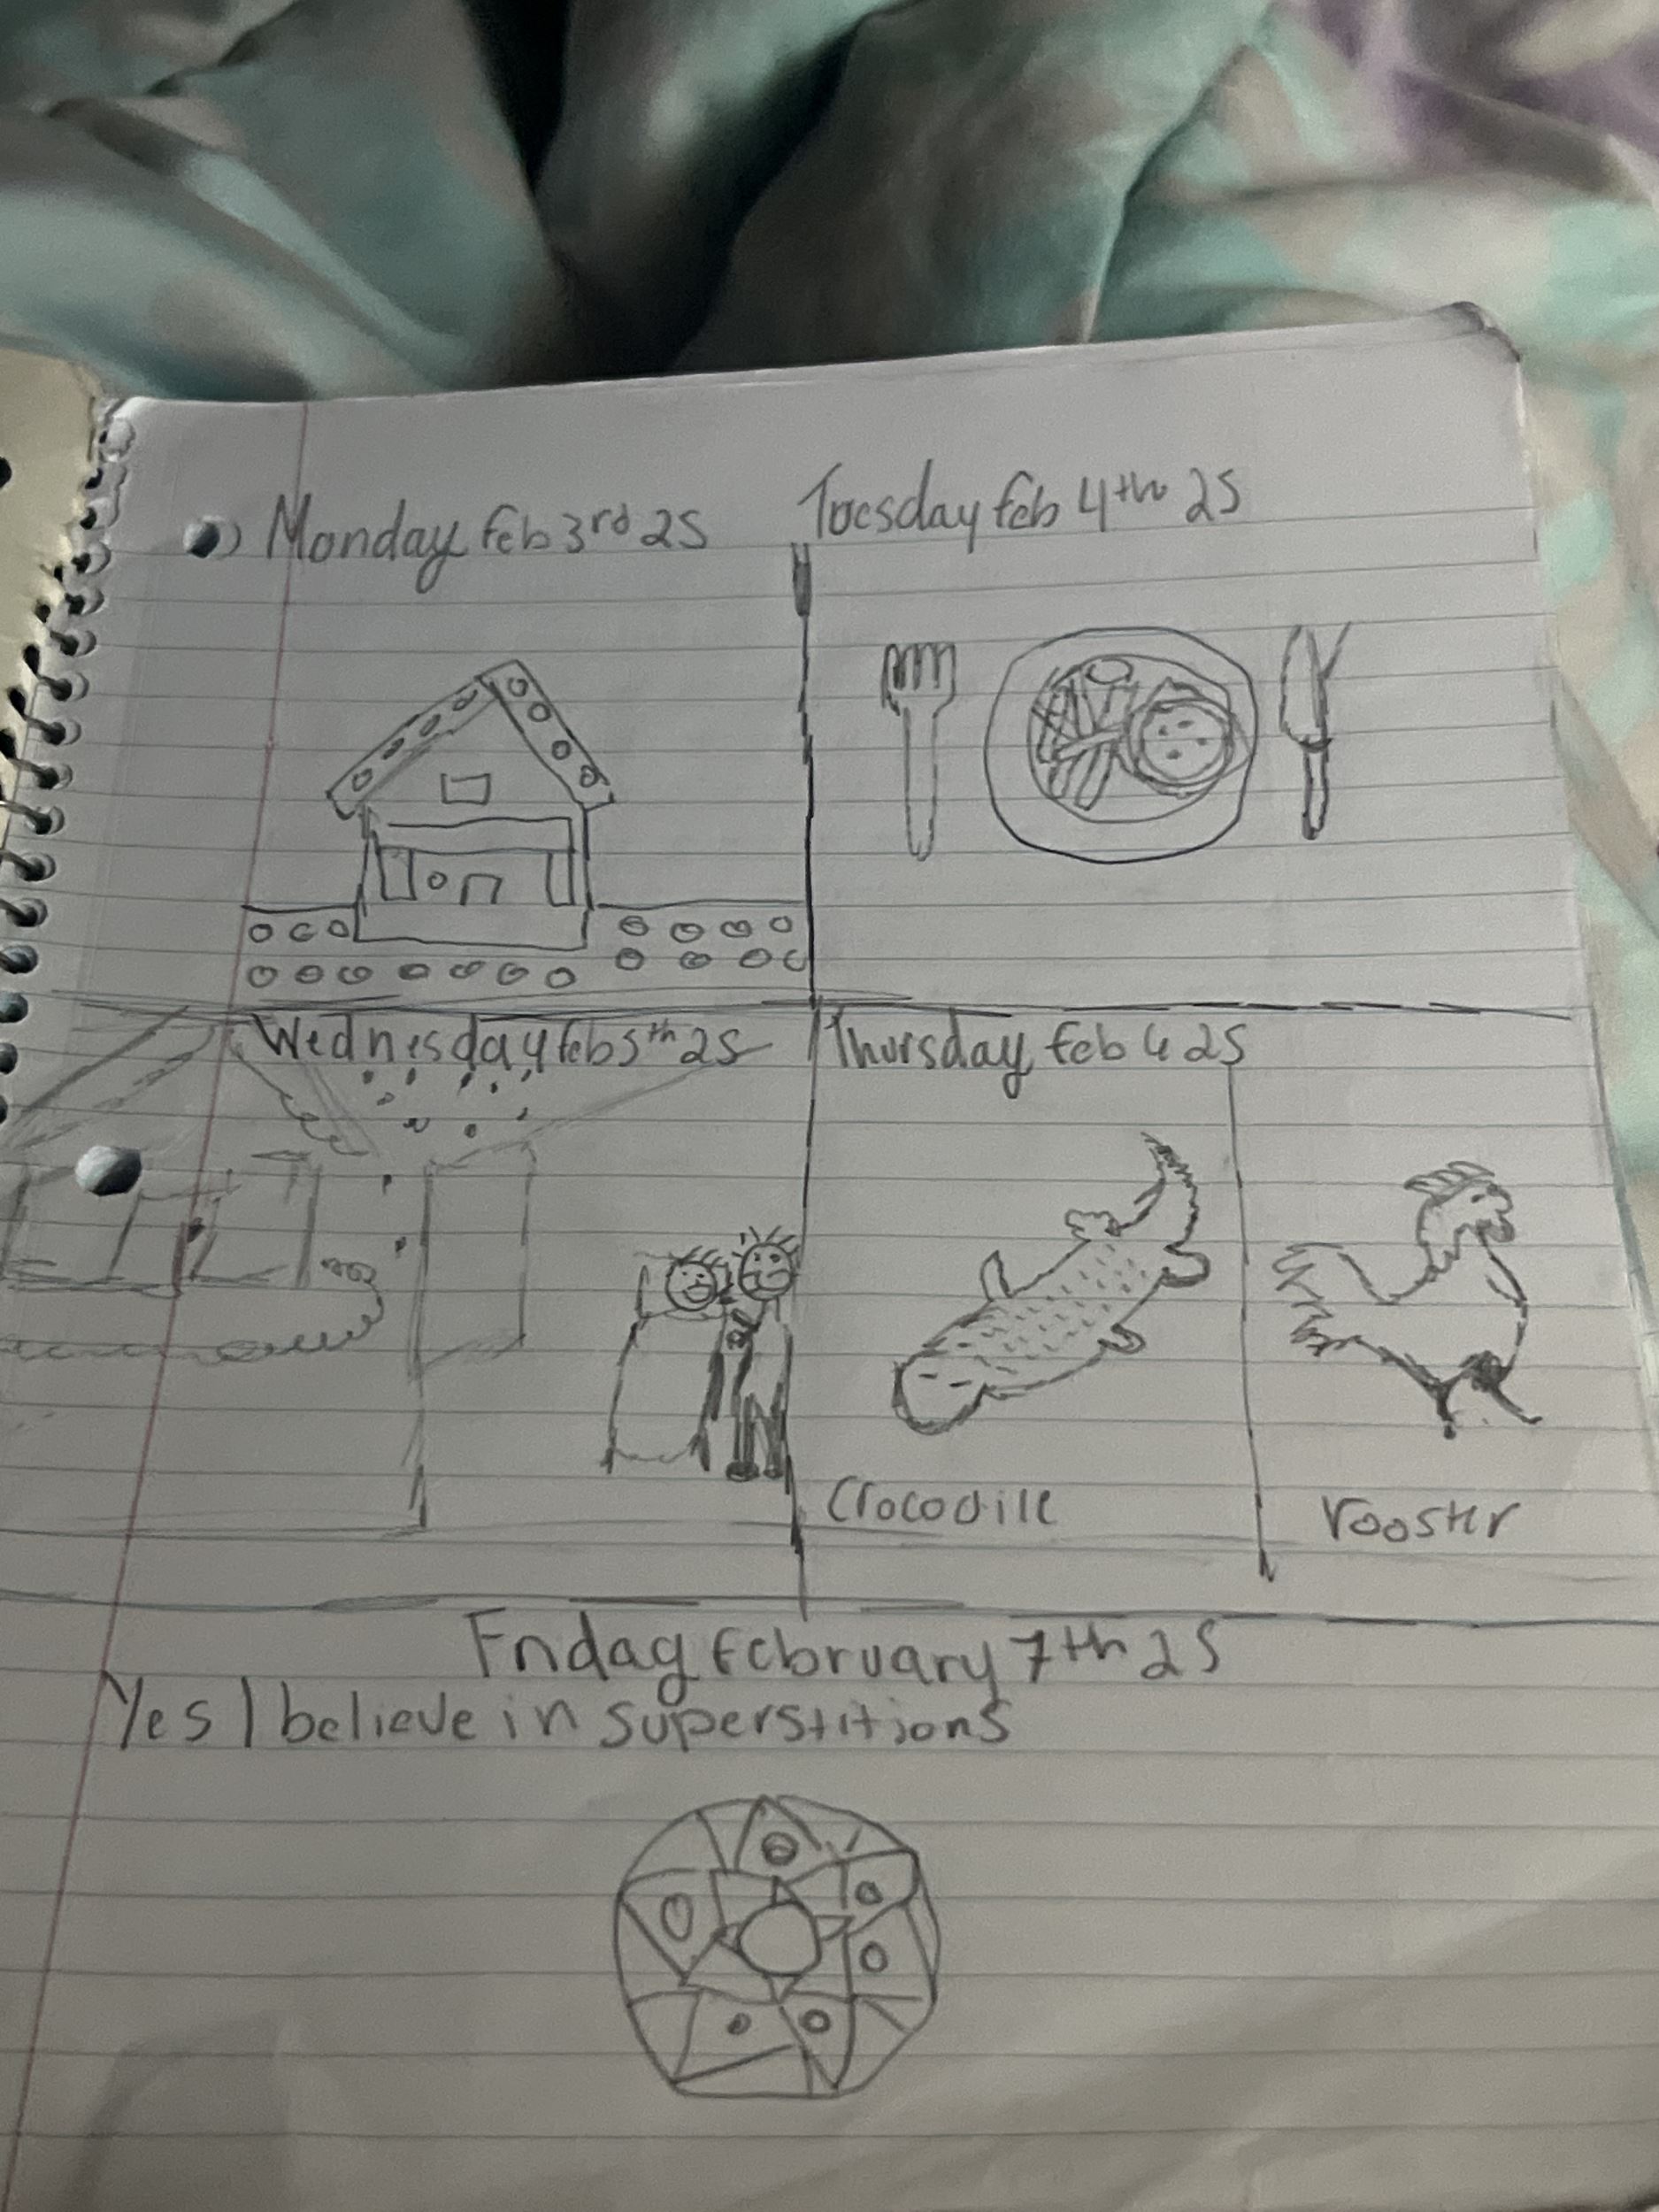 Monday feb 3rd 25
Tuesday feb 4th 25
Wednesday feb 5th 25
Thursday feb 6 25
Crocodile
rooster
Friday February 7th 25
Yes I believe in superstitions